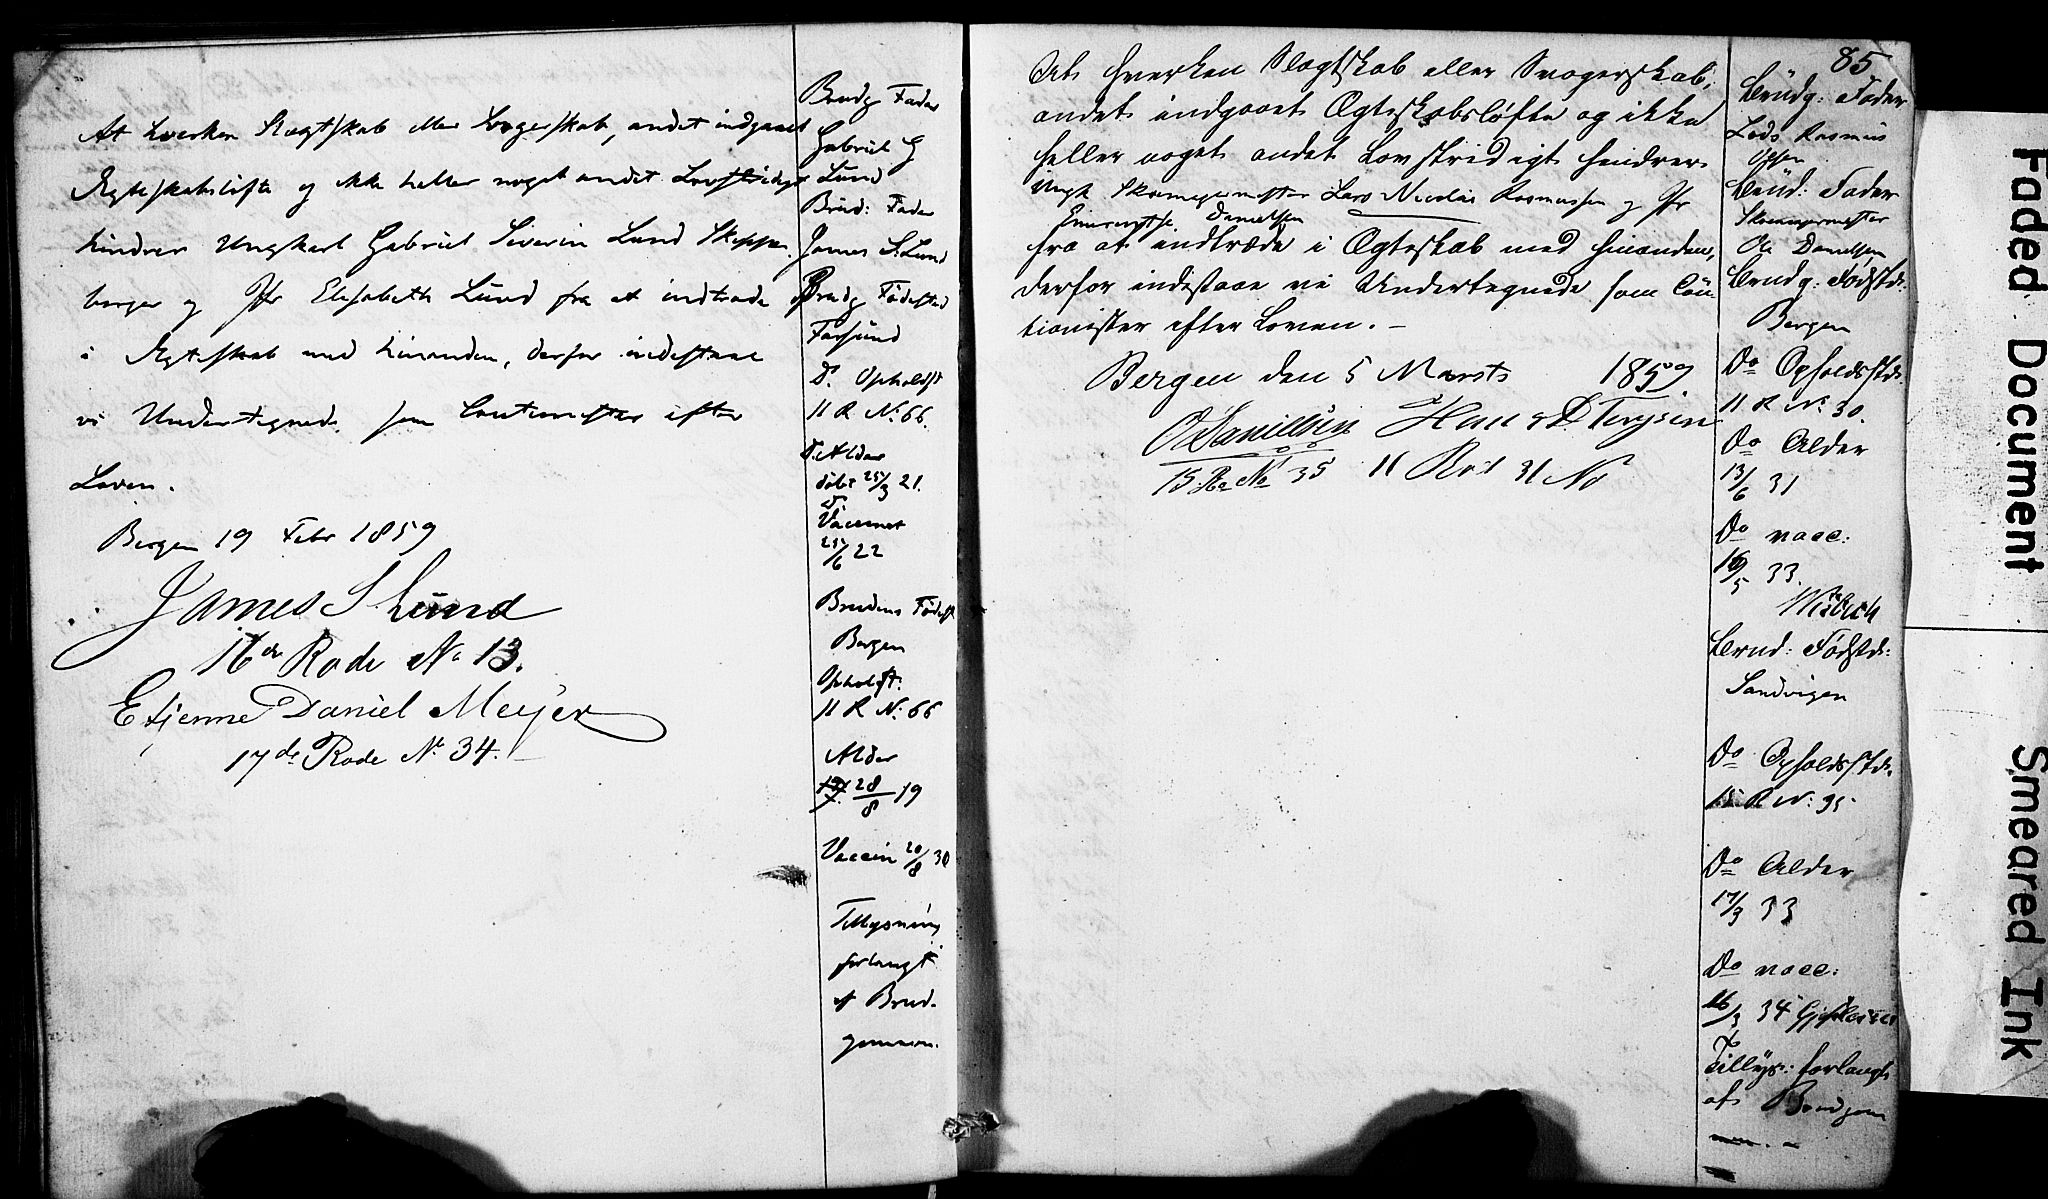 At hverken Slægtskab eller Svogerskab, andet indgaaet
Ægteskabsløfte og ikke heller noget andet Lovstridigt
hindrer Ungkarl Gabriel Severin Lund Skipper
borger og Jfr Elisabeth Lund fra at indtræde
i Ægteskab med hinanden, derfor indestaae
vi Undertegnede som Cautionister efter
Loven.
Bergen 19 Febr 1859
James S Lund
16de Rode No 13.
Etjenne Daniel Meijer
17de Rode No 34.
Brudg Fader
Gabriel G
Lund
Brud: Fader
James S. Lund
Brudg Fødested
Farsund
Do Opholdst
11 R No: 66.
Do Alder
døbt 25/3 21.
Do
Vaccineret
25/6 22
Brudens Fødest
Bergen
Opholdst:
11 R No: 66
Alder
28/8 19
Vaccin 20/8 30
Tillysning
forlangt
af Brud-
gommen.
85
At hverken Slægtskab eller Svogerskab,
andet indgaaet Ægteskabsløfte og ikke
heller noget andet Lovstridigt hindrer
Ungk. Skomagermester Lars Nicolai Rasmussen og Jfr
Danielsen
fra at indtræde i Ægteskab med hinanden,
derfor indestaae vi Undertegnede som Cau-
tionister efter Loven. –
Bergen den 5 Marts 1859
O Danielsen
15 Ro No 35 11 Rod 31 No
Brudg: Fader
Lods Rasmus
Olsen
Brud: Fader
Skomagermester
Ole Danielsen
Brudg: Fødstd:
Bergen
Do Opholdsstd:
11 R No: 30.
Do Alder
13/6 31
Do vacc:
16/5 33.
Brud: Fødstd:
Sandvigen
Do Opholdsstd:
15 R No: 35
Do Alder
17/3 33
Do vacc:
16/3 34
Tillys: forlangt
af Brudgom
men. –
Faded Document
Smeared Ink